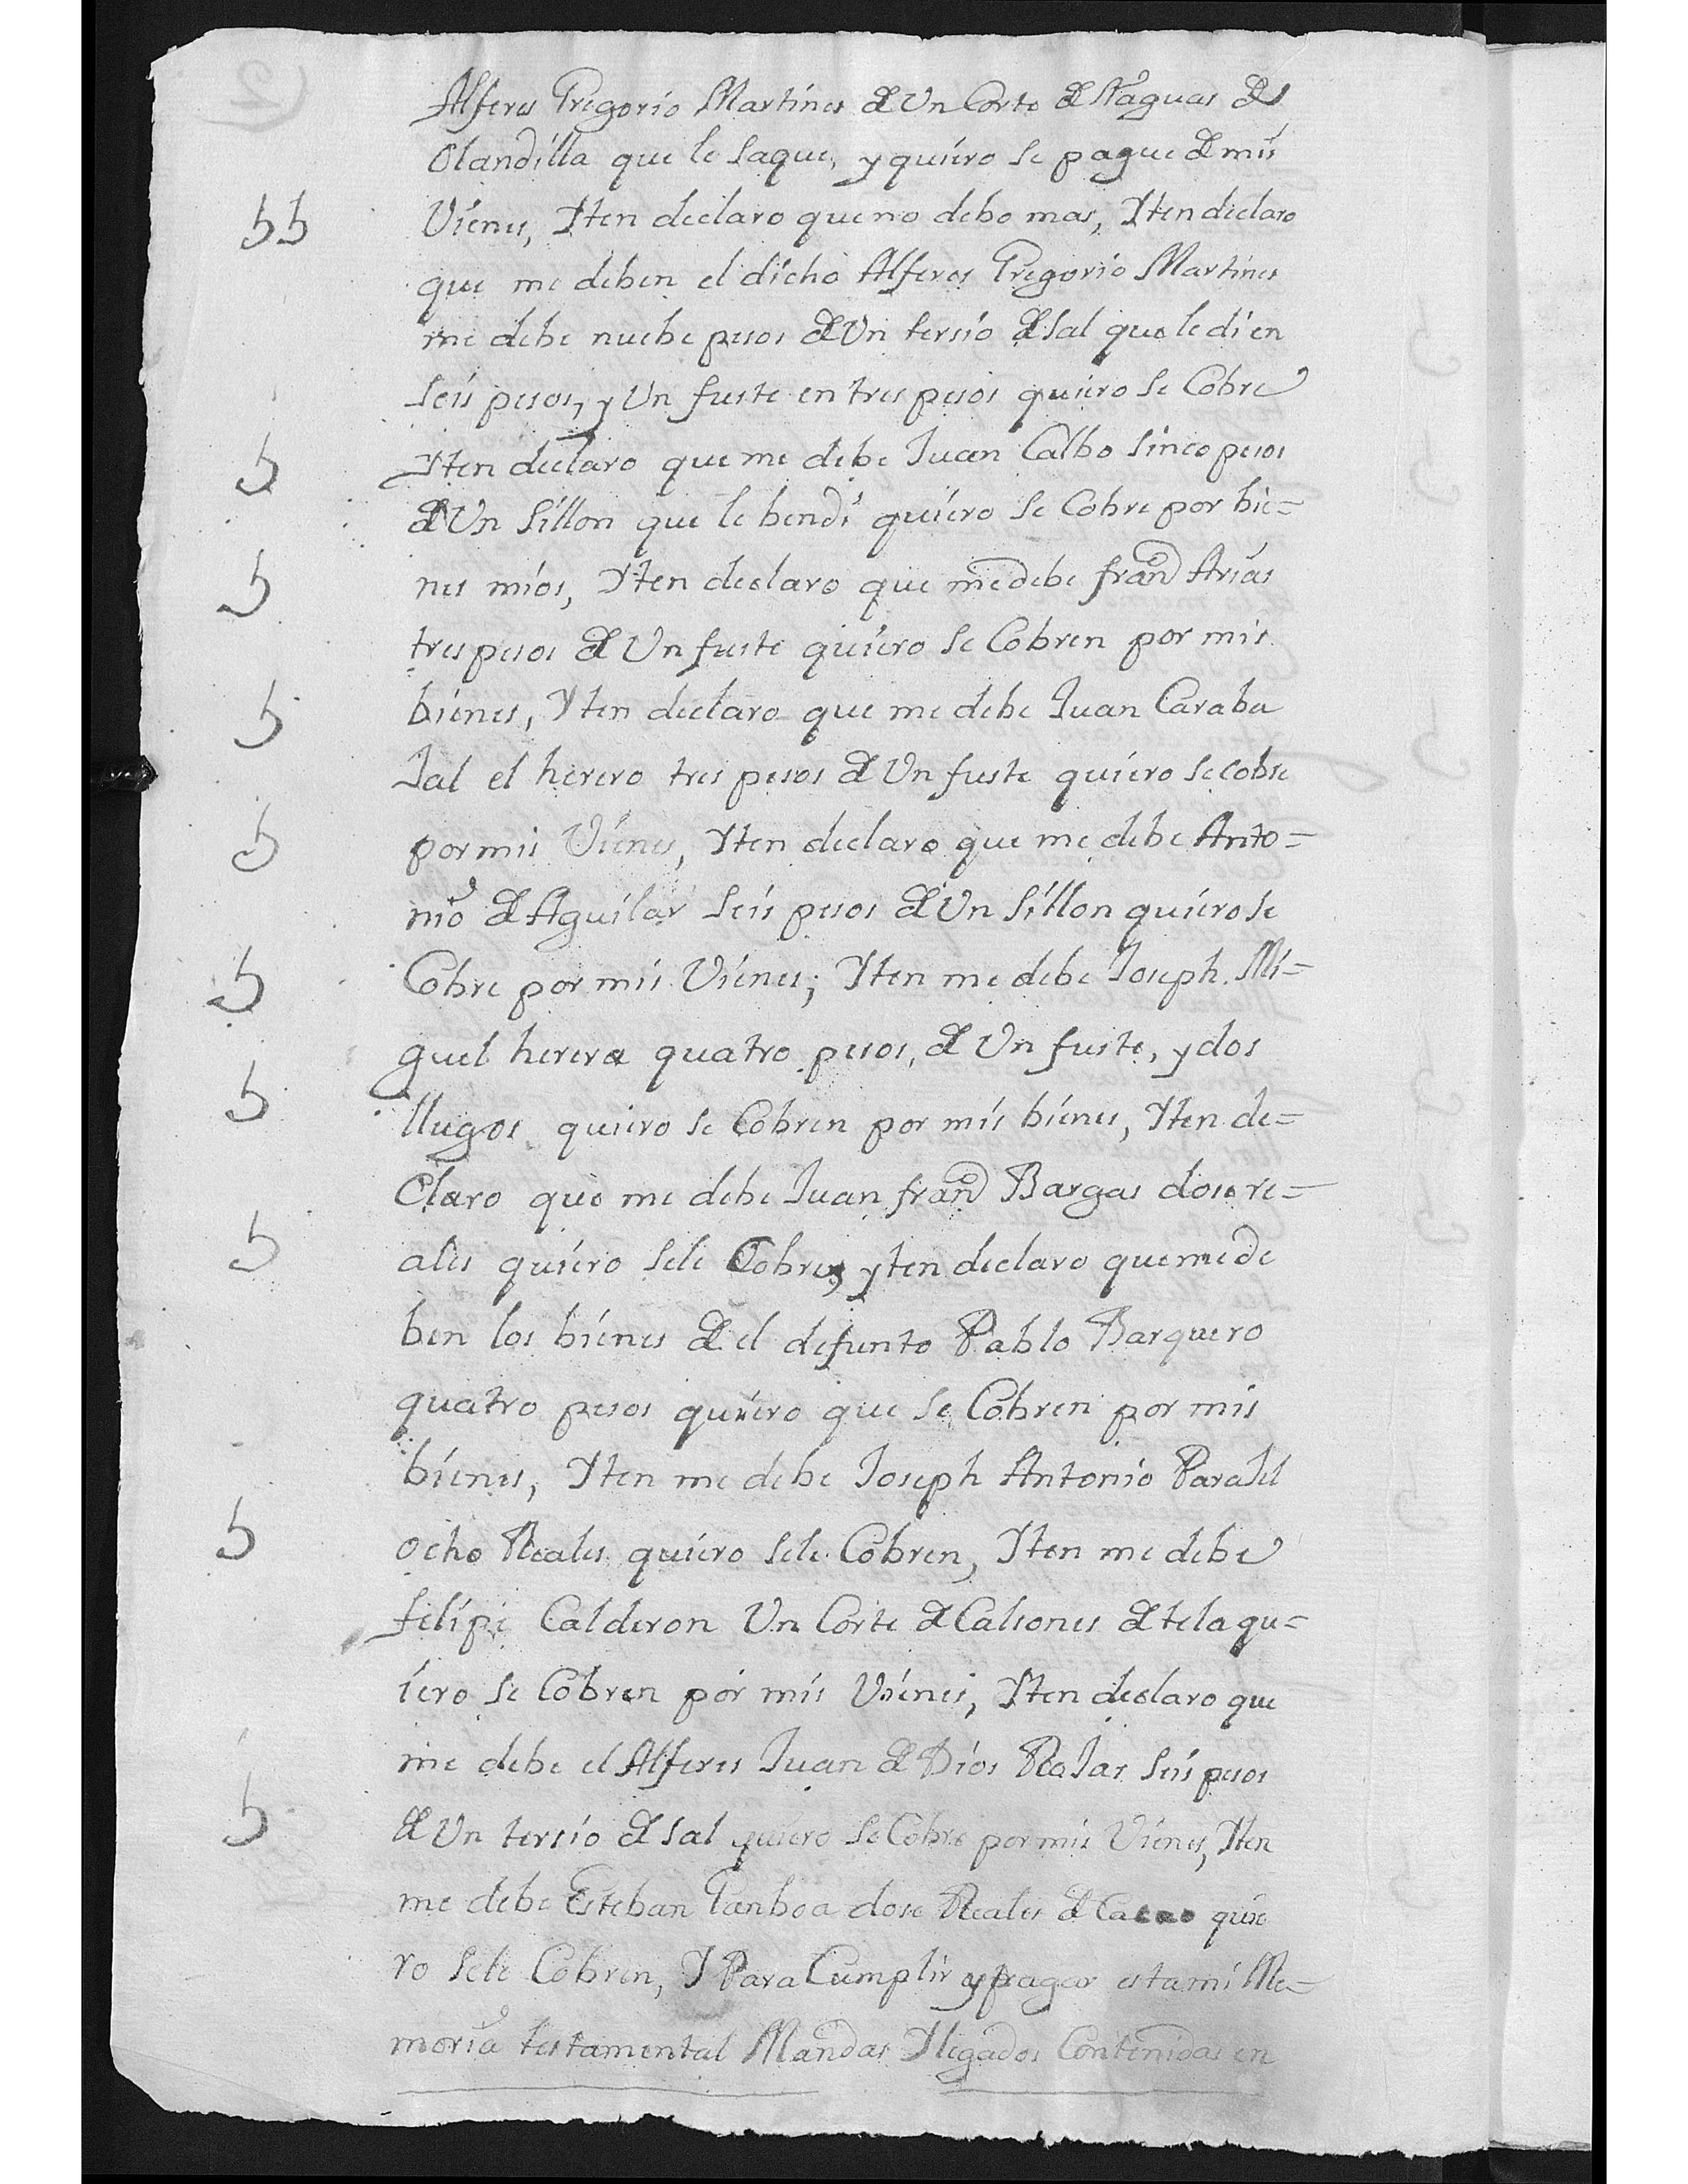 Alferes Gregorio Martines de Un Corte de Naguas de
Olandilla que le saque, y quiero se pague de mis
Vienes, Yten declaro que no debo mas, Yten declaro
que me deben el dicho Alferes Gregorio Martines
me debe nuebe pesos de Un tersio de sal que le di en
seis pesos, y Un fuste en tres pesos quiero se Cobre
Yten declaro que me debe Juan Calbo sinco pesos
de Un sillon que le bendi quiero se Cobre por bie=
nes mios, Yten declaro que me debe franco Arias
tres pesos de Un fuste quiero se Cobren por mis
bienes, Yten declaro que me debe Juan Caraba
Jal el herero tres pesos de Un fuste quiero se cobre
por mis Vienes, Yten declaro que me debe Anto=
nio de Aguilar seis pesos de Un sillon quiero se
Cobre por mis Vienes; Yten me debe Joseph Mi=
guel herera quatro pesos, de Un fuste, y dos
llugos quiero se Cobren por mis bienes, Yten de=
Claro que me debe Juan franco Bargas dose re=
ales quiero sele Cobres, yten declaro que me de
ben los bienes de el defunto Pablo Barquero
quatro pesos quiero que se Cobren por mis
bienes, Yten me debe Joseph Antonio ParaJel
ocho Reales quiero sele Cobren, Yten me debe
felipe Calderon Un Corte de Calsones de tela qu=
iero se Cobren por mis Vienes, Yten declaro que
me debe el Alferes Juan de Dios RoJas seis pesos
de Un tersio de sal quiero se Cobre por mis Vienes, Yten
me debe Esteban Ganboa dose Reales de Cacao quie
ro sele Cobren, Y Para Cumplir y pagar esta mi Me=
moria testamental Mandas Y legados Contenidas en